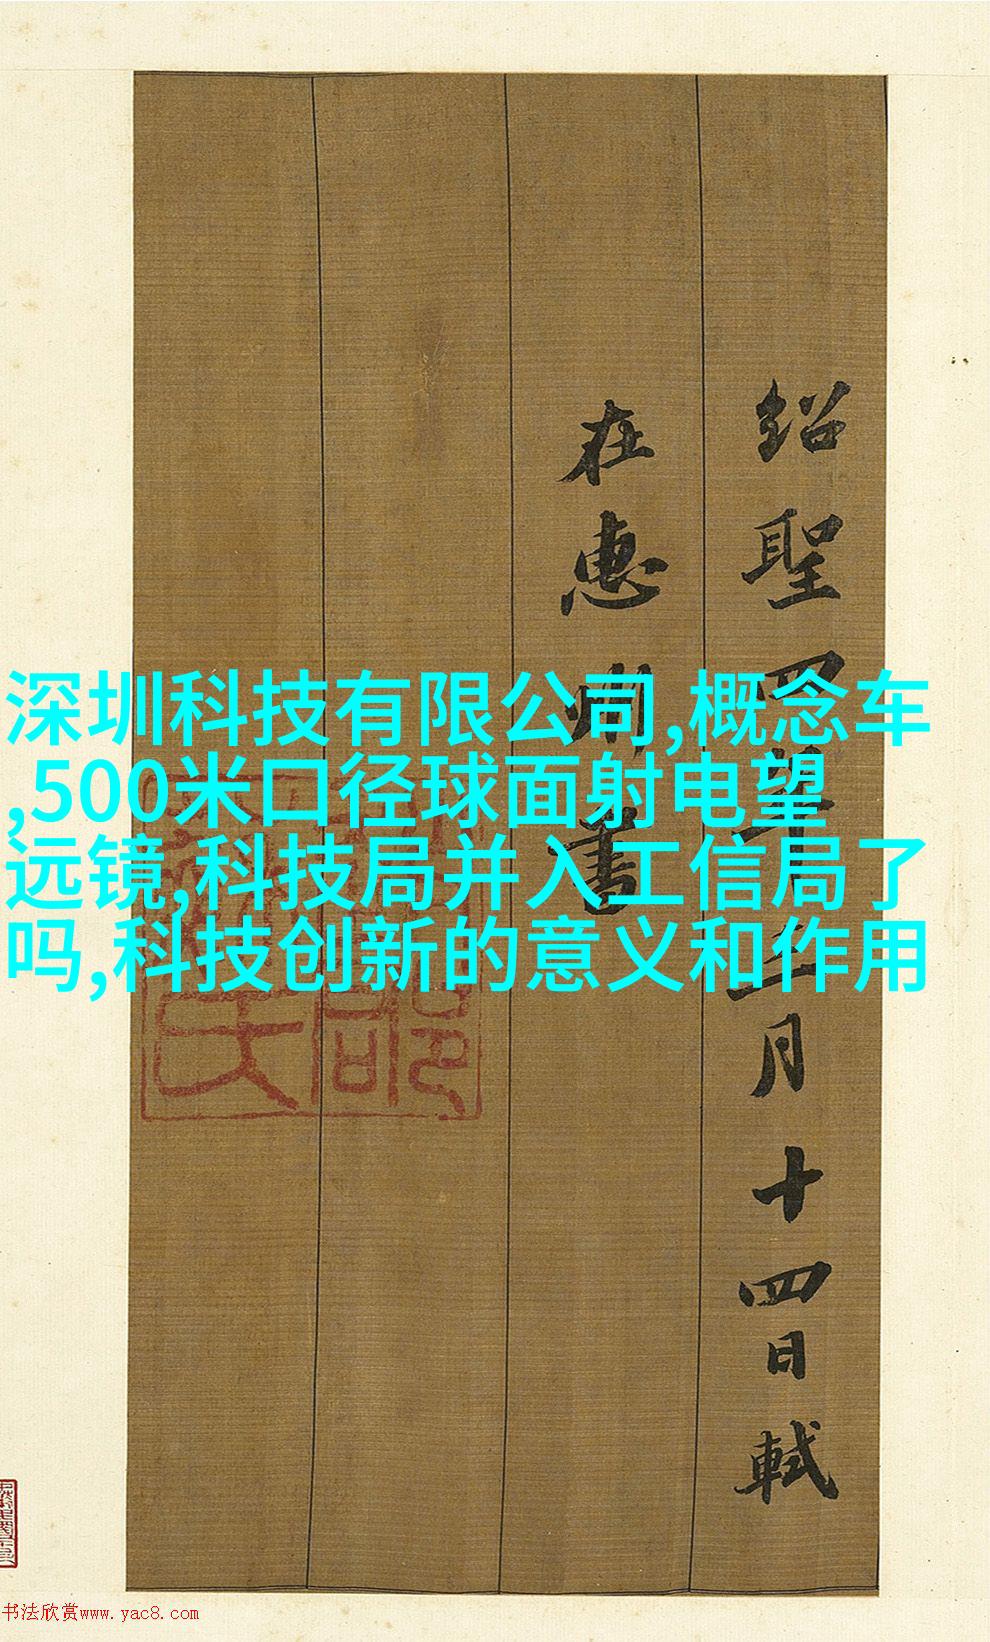 绍聖四年三月十四日軾
在惠州書
深圳科技有限公司,概念车
,500米口径球面射电望
远镜,科技局并入工信局了
吗,科技创新的意义和作用
书法欣赏www.yac8.com